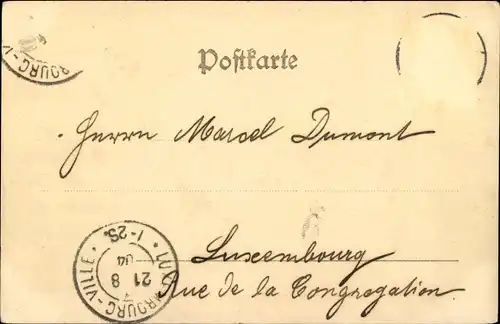 BOURG-V
Postkarte
Herrn Marcel Dumont
Luxembourg
Rue de la Congregation
LUX BOURG-VILLE
1-2S.
21 8
04